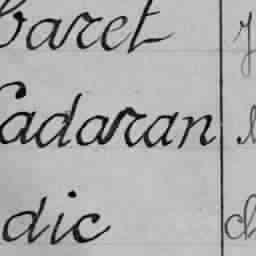 baret
Cadaran
dic